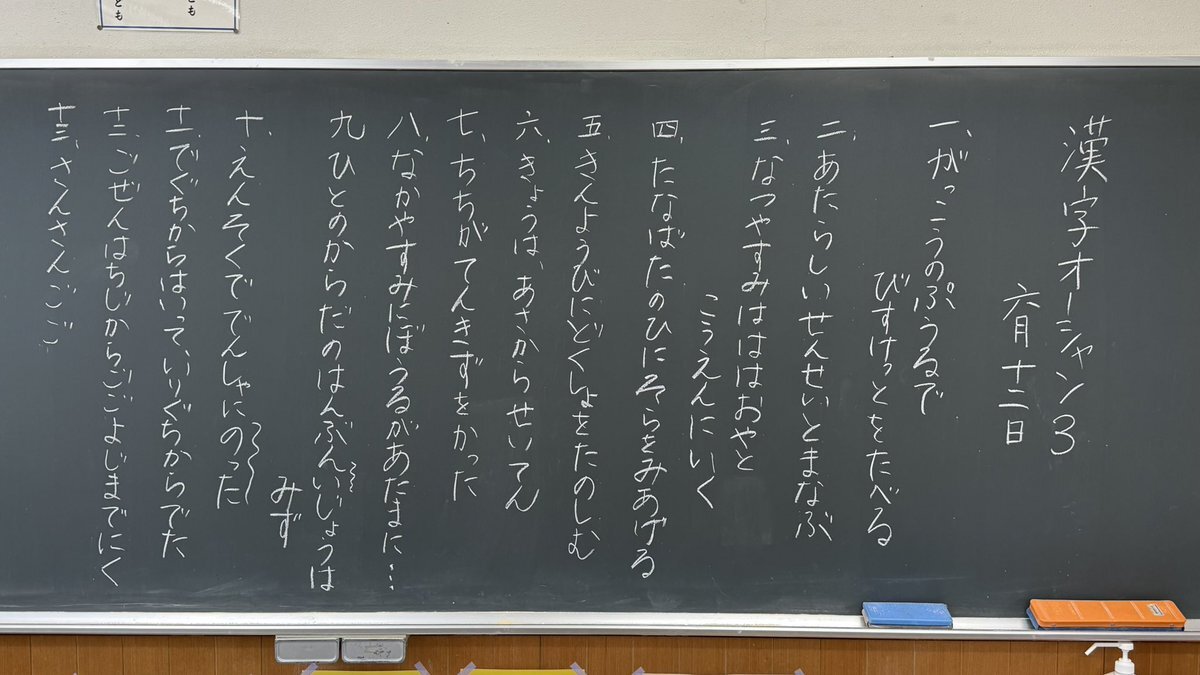 とも
とも
漢字オーシャン3
六月十二日
一、がっこうのぷうるで
びすけっとをたべる
二、あたらしいせんせいとまなぶ
三、なつやすみはははおやと
こうえんにいく
四、たなばたのひにそらをみあげる
五、きんようびにどくしょをたのしむ
六、きょうは、あさからせいてん
七、ちちがてんきずをかった
八、なかやすみにぼうるがあたまに…
九、ひとのからだのはんぶんいじょうは
みず
十、えんそくででんしゃにのった
十一、でぐちからはいって、いりぐちからでた
十二、ごぜんはちじからごごよじまでにく
十三、さんさんごご